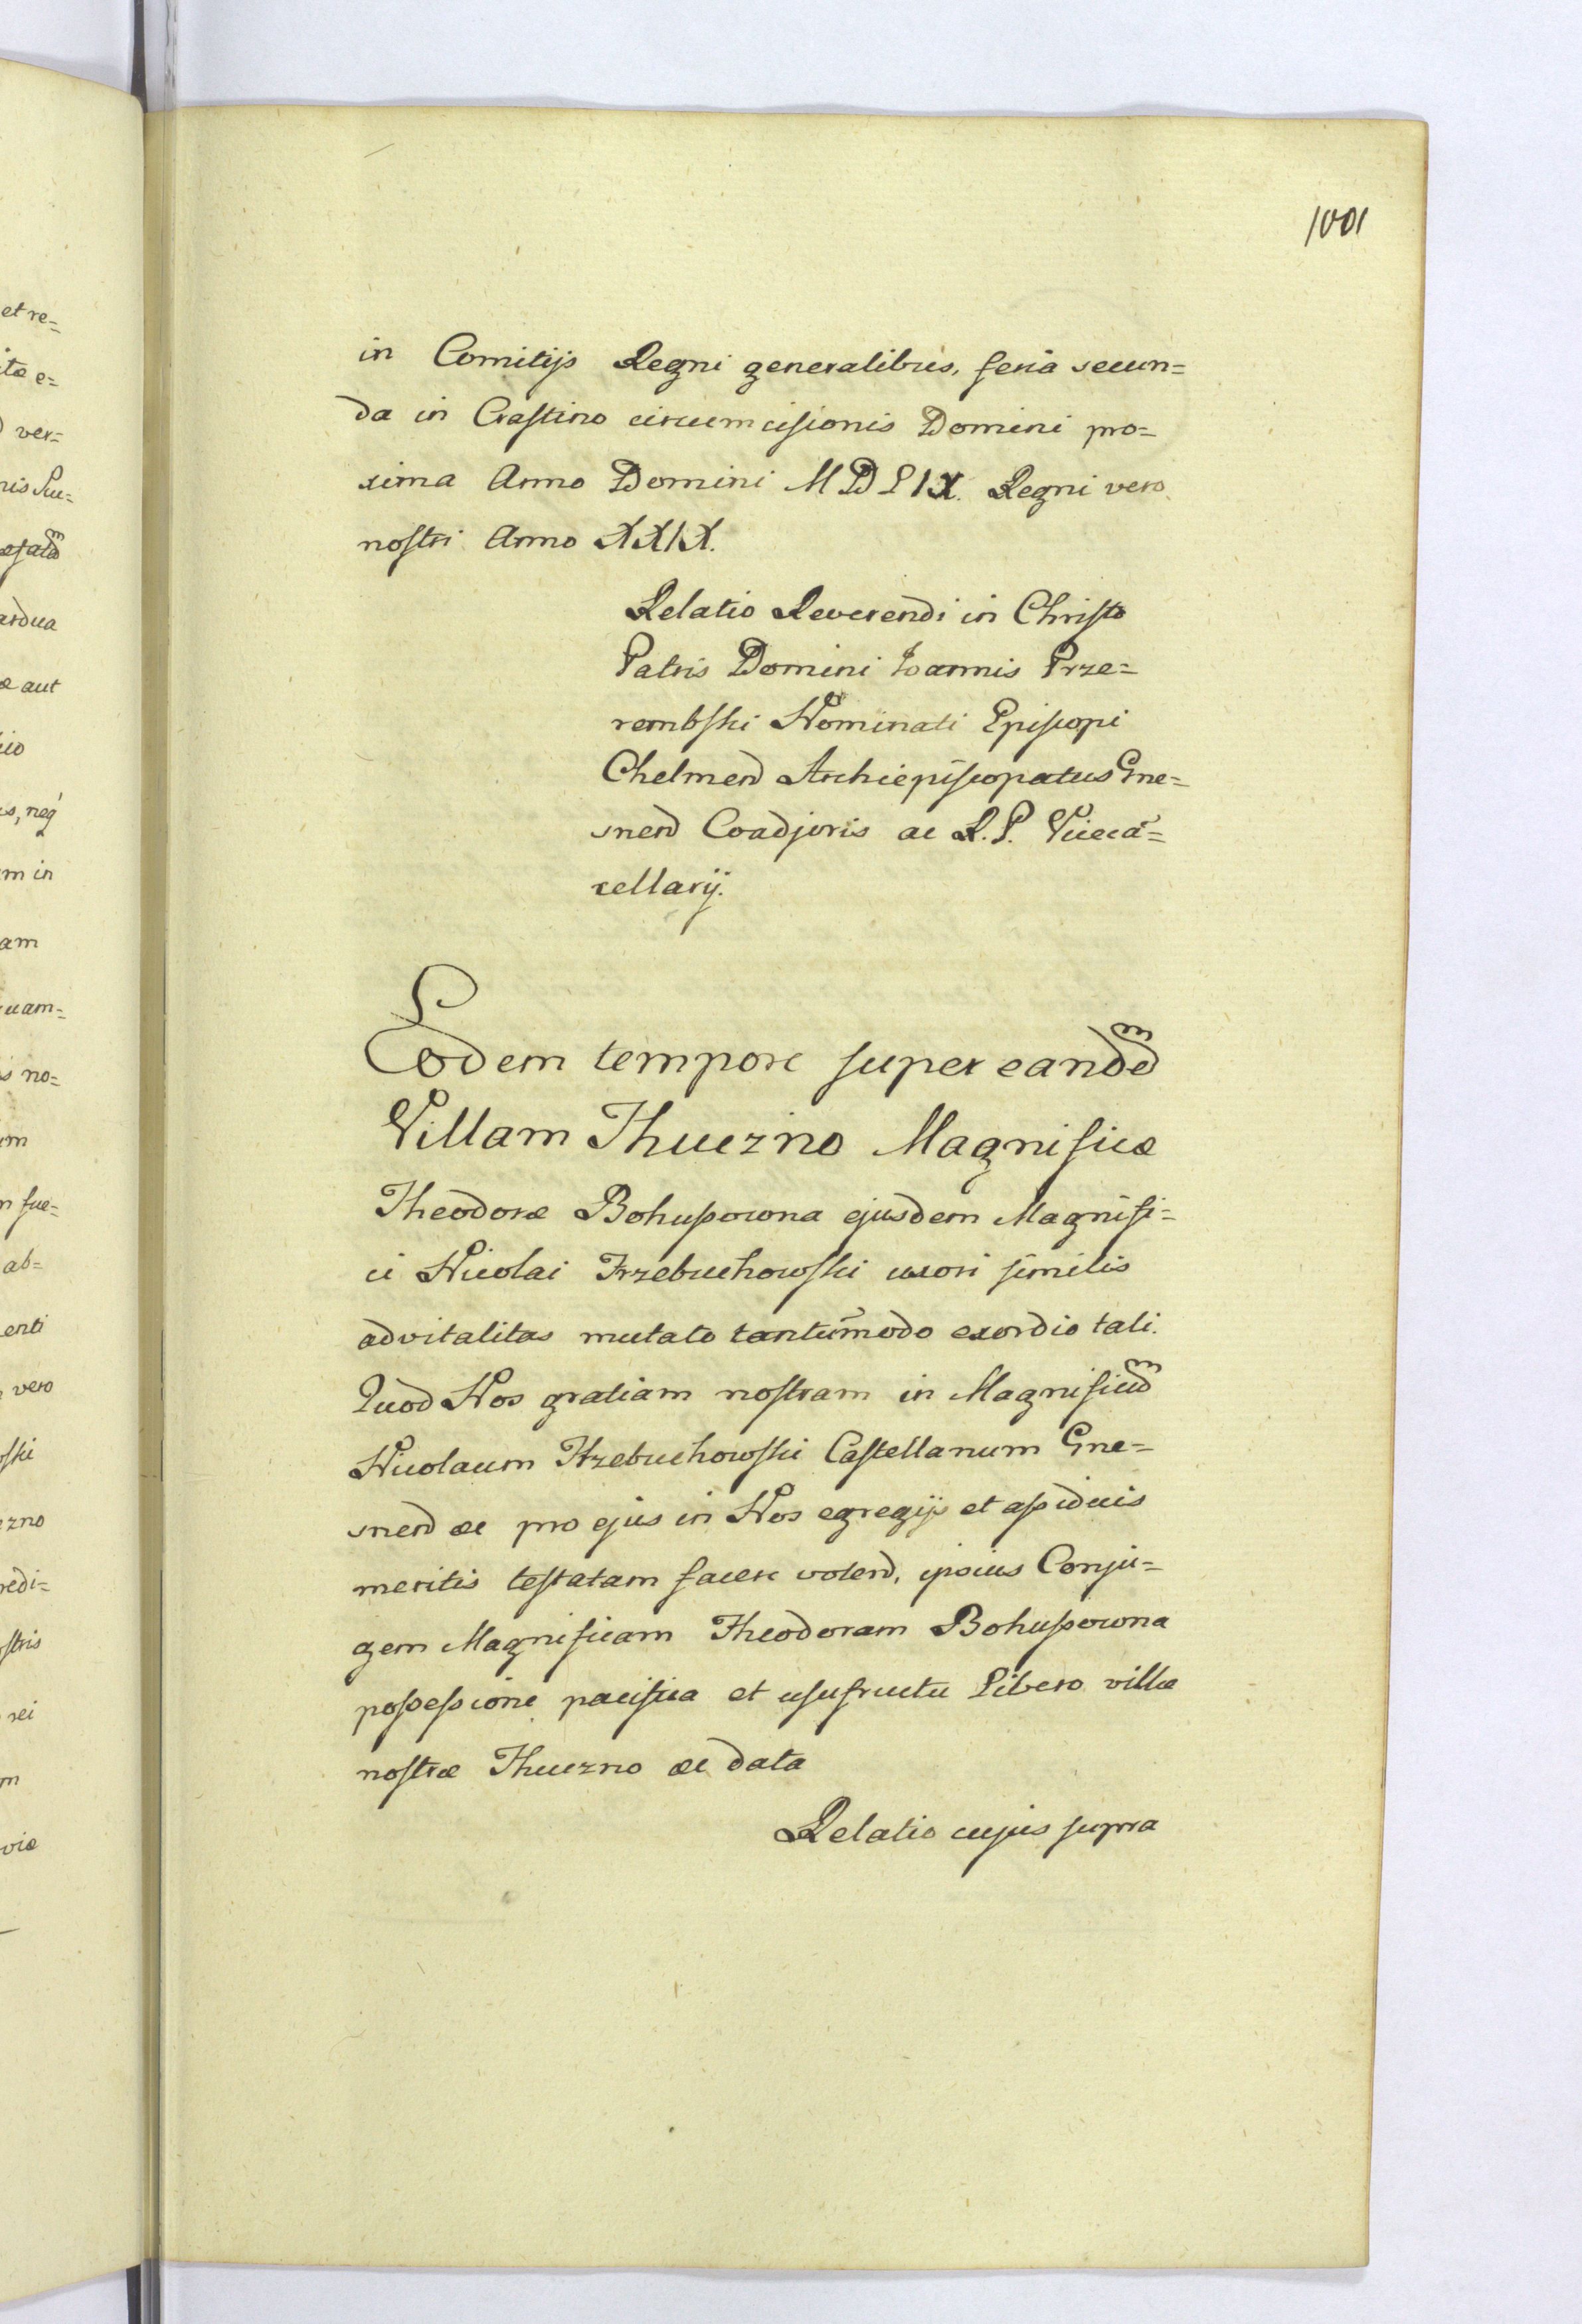 1001
et re=
ver=
ardua
aut
m in
am
uam=
s no=
m
ab=
vero
zno
redi=
stris
rei
in Comitijs Regni generalibus, feria secun=
da in Crastino circumcisionis Domini pro=
xima Anno Domini MDLIX. Regni vero
nostri Anno XXIX.
Relatio Reverendi in Christo
Patris Domini Joannis Prze=
rembski Nominati Episcopi
Chelmen Archiepiscopatus Gne=
snen Coadjoris ac R. P. Vicecā=
cellarij.
Eodem tempore super eandem
Villam Thuczno Magnificæ
Theodoræ Bohuszowna ejusdem Magnifi=
ci Nicolai Trzebuchowski uxori similis
advitalitas mutato tantūmodo exordio tali.
Quod Nos gratiam nostram in Magnificum
Nicolaum Trzebuchowski Castellanum Gne=
snen ac pro ejus in Nos egregijs et assiduis
meritis testatam facere volen, ipsius Conju=
gem Magnificam Theodoram Bohuszowna
possessione pacifica et usufructu Libero villæ
nostræ Thuczno ac data
Relatio cujus supra